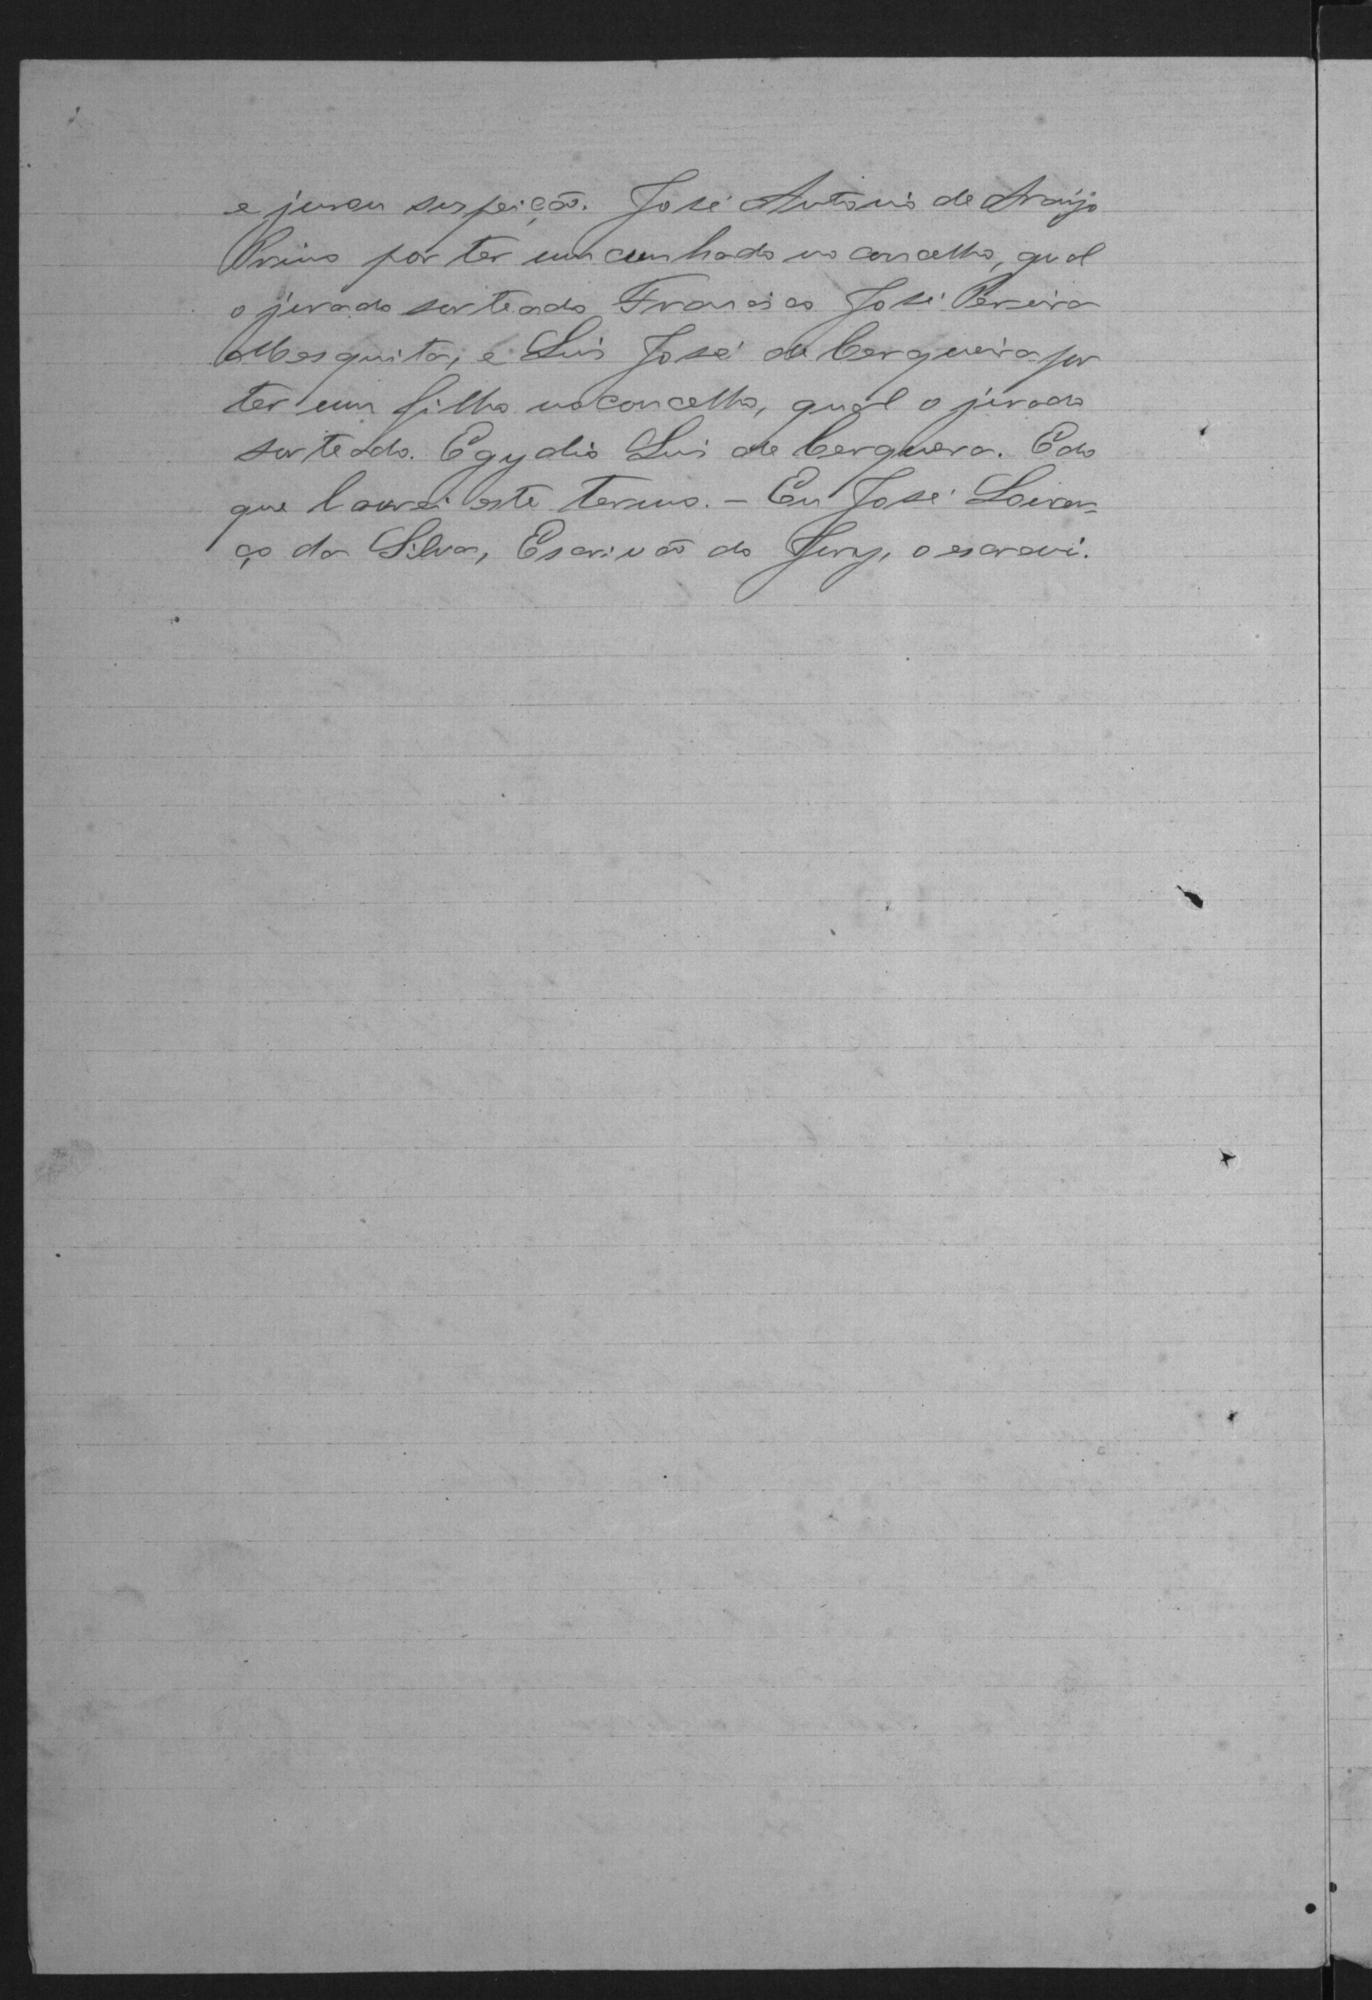 e jurou suspeição. José Antonio de Araújo
Primo por ter um cunhado no concelho, qual
o jurado sorteado Francisco José Pereira
Mesquita, e Luis José de Cerqueira por
ter um filho no concelho, qual o jurado
sorteado. Egydio Luis de Cerquera. E do
que lavrei este termo. - Eu José Louren=
ço da Silva, Escrivão do Jury, o escrevi.